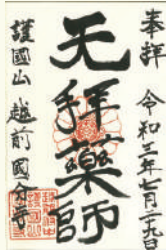 奉拝
令和三年七月二十九日
天拝薬師
謹國山 越前 國分寺